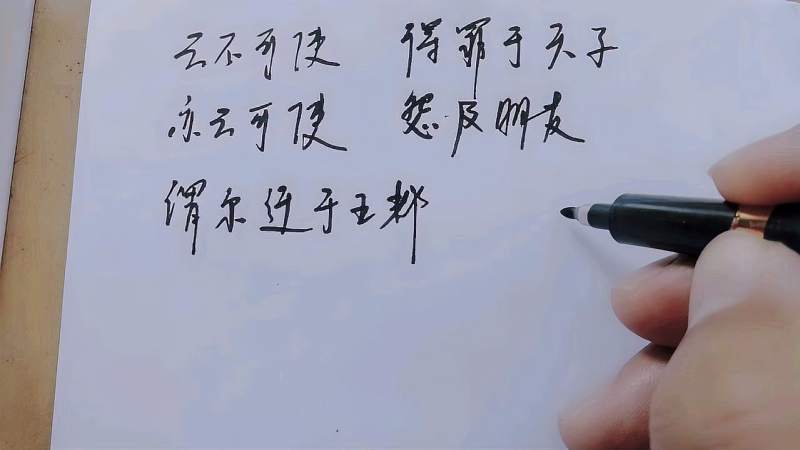 云不可使 得罪于天子
亦云可使 怨及朋友
谓尔迁于王都